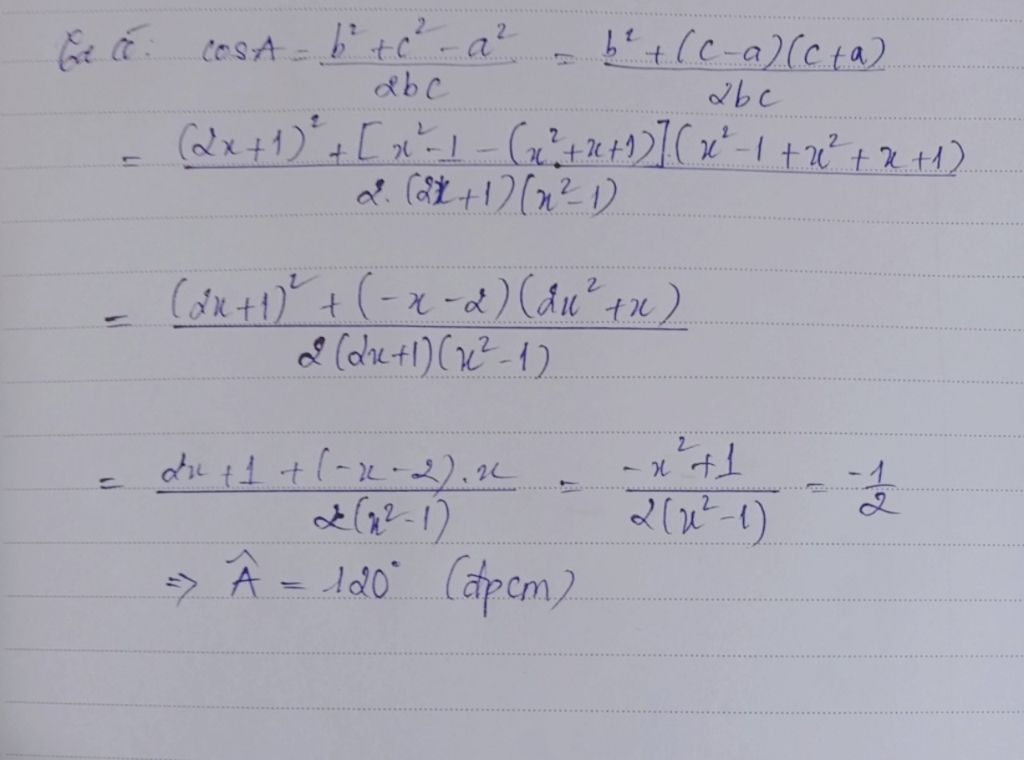 Có: cosA = (b² + c² - a²)/(2bc) = (b² + (c-a)(c+a))/(2bc)
= ((2x+1)² + [x² - 1 - (x² + x + 1)].(x² - 1 + x² + x + 1))/(2.(2x+1)(x² - 1))
= ((2x+1)² + (-x-2)(2x² + x))/(2(2x+1)(x² - 1))
= (2x+1 + (-x-2).x)/(2(x² - 1)) = (-x² + 1)/(2(x² - 1)) = -1/2
=> Â = 120° (đpcm)